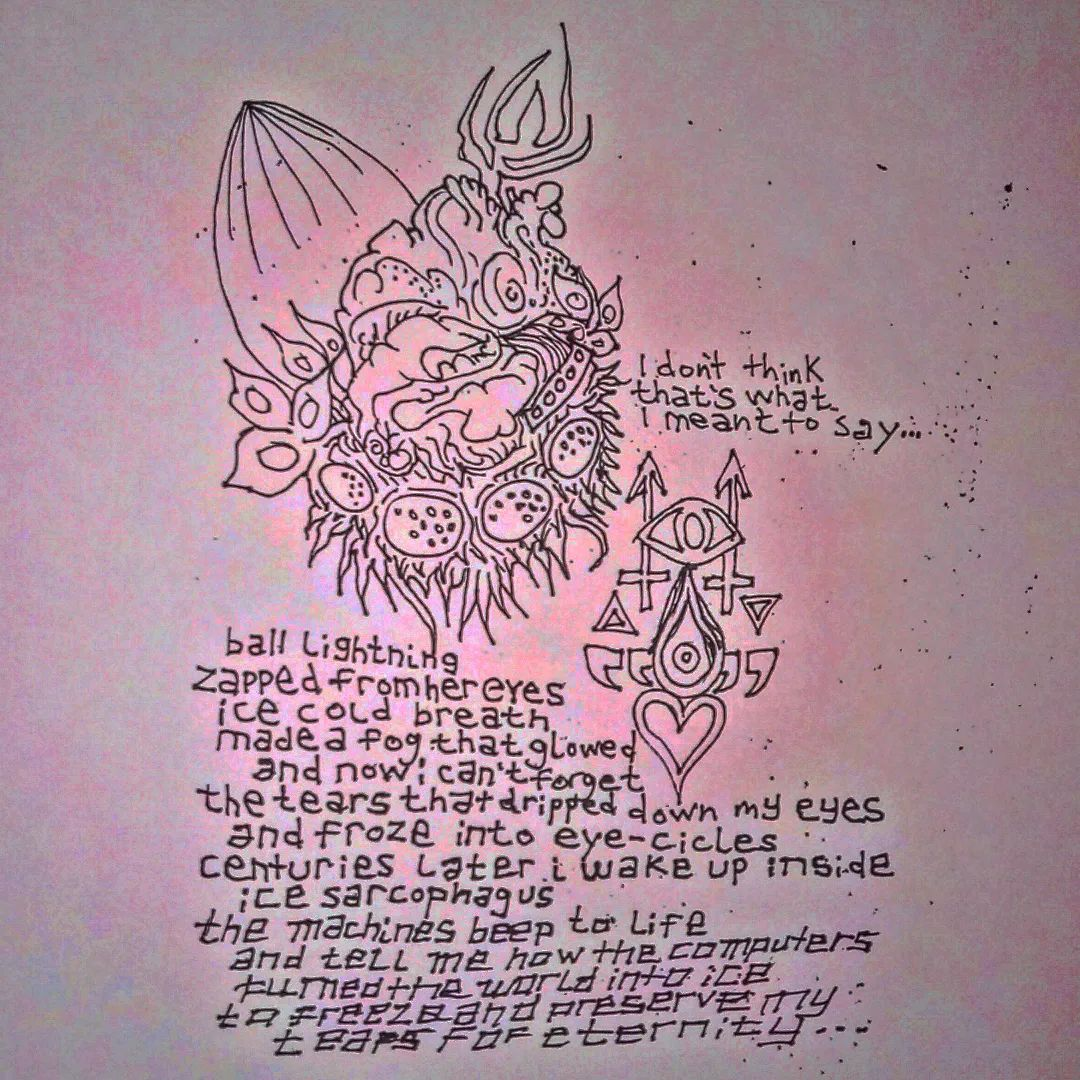 I don't think
that's what
I meant to say...
ball lightning
zapped from her eyes
ice cold breath
made a fog that glowed
and now i can't forget
the tears that dripped down my eyes
and froze into eye-cicles
centuries later i wake up inside
ice sarcophagus
the machines beep to life
and tell me how the computers
turned the world into ice
to freeze and preserve my
tears for eternity...